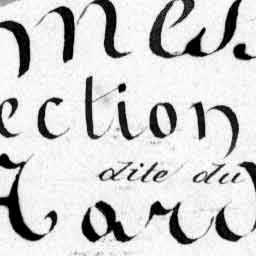 mess
ection
dite du
Hard